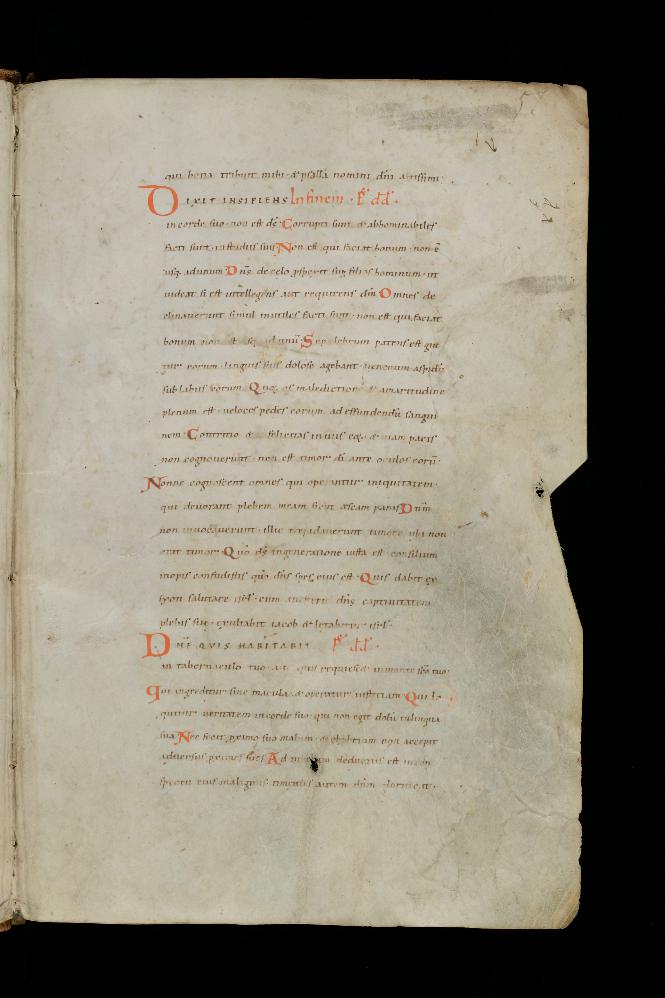 5
qui bona tribuit mihi · & psallā nomini dn̄i altissimi ·
DIXIT INSIPIENS In finem · ps̄ dd̄ ·
in corde suo · non est ds̄ · Corrupti sunt & abhominabiles
facti sunt · in studiis suis Non est qui faciat bonum · non ē
usq; ad unum Dn̄s de celo prosperit sup filios hominum · ut
uideat si est intellegens aut requirens dm̄ Omnes de
clinauerunt simul inutiles facti sunt · non est qui faciat
bonum non est usq; ad unū · Sepulchrum patens est gut
tur eorum · linguis suis dolose agebant · uenenum aspidū
sub labiis eorum Quoȥ os maledictione & amaritudine
plenum est · ueloces pedes eorum ad effundendū sangui
nem · Contritio & felicitas in uiis eoȥ · & uiam pacis
non cognouerunt · non est timor dī ante oculos eorū ·
Nonne cognoscent omnes qui operantur iniquitatem ·
qui deuorant plebem meam sicut escam panis Dn̄m
non inuocauerunt · illic trepidauerunt timore ubi non
erit timor · Quō ds̄ in generatione iusta est · consilium
inopis confudistis quō dn̄s spes eius est · Quis dabit ex
syon salutare isrl̄ · cum auerterit dn̄s captiuitatem
plebis suę · exultabit iacob & letabitur isrl̄ ·
DN̄E QUIS HABITABIT ps̄ dd̄ ·
in tabernaculo tuo · aut quis requiesc& in monte scō tuo ·
Qui ingreditur sine macula · & operatur iustitiam Qui lo
quitur ueritatem in corde suo · qui non egit dolū in lingua
sua · Nec fecit proximo suo malum · & obprobrium non accepit
aduersus proximos suos Ad nihilum deductus est in con
spectu eius malignus · timentes autem dn̄m glorificat ·